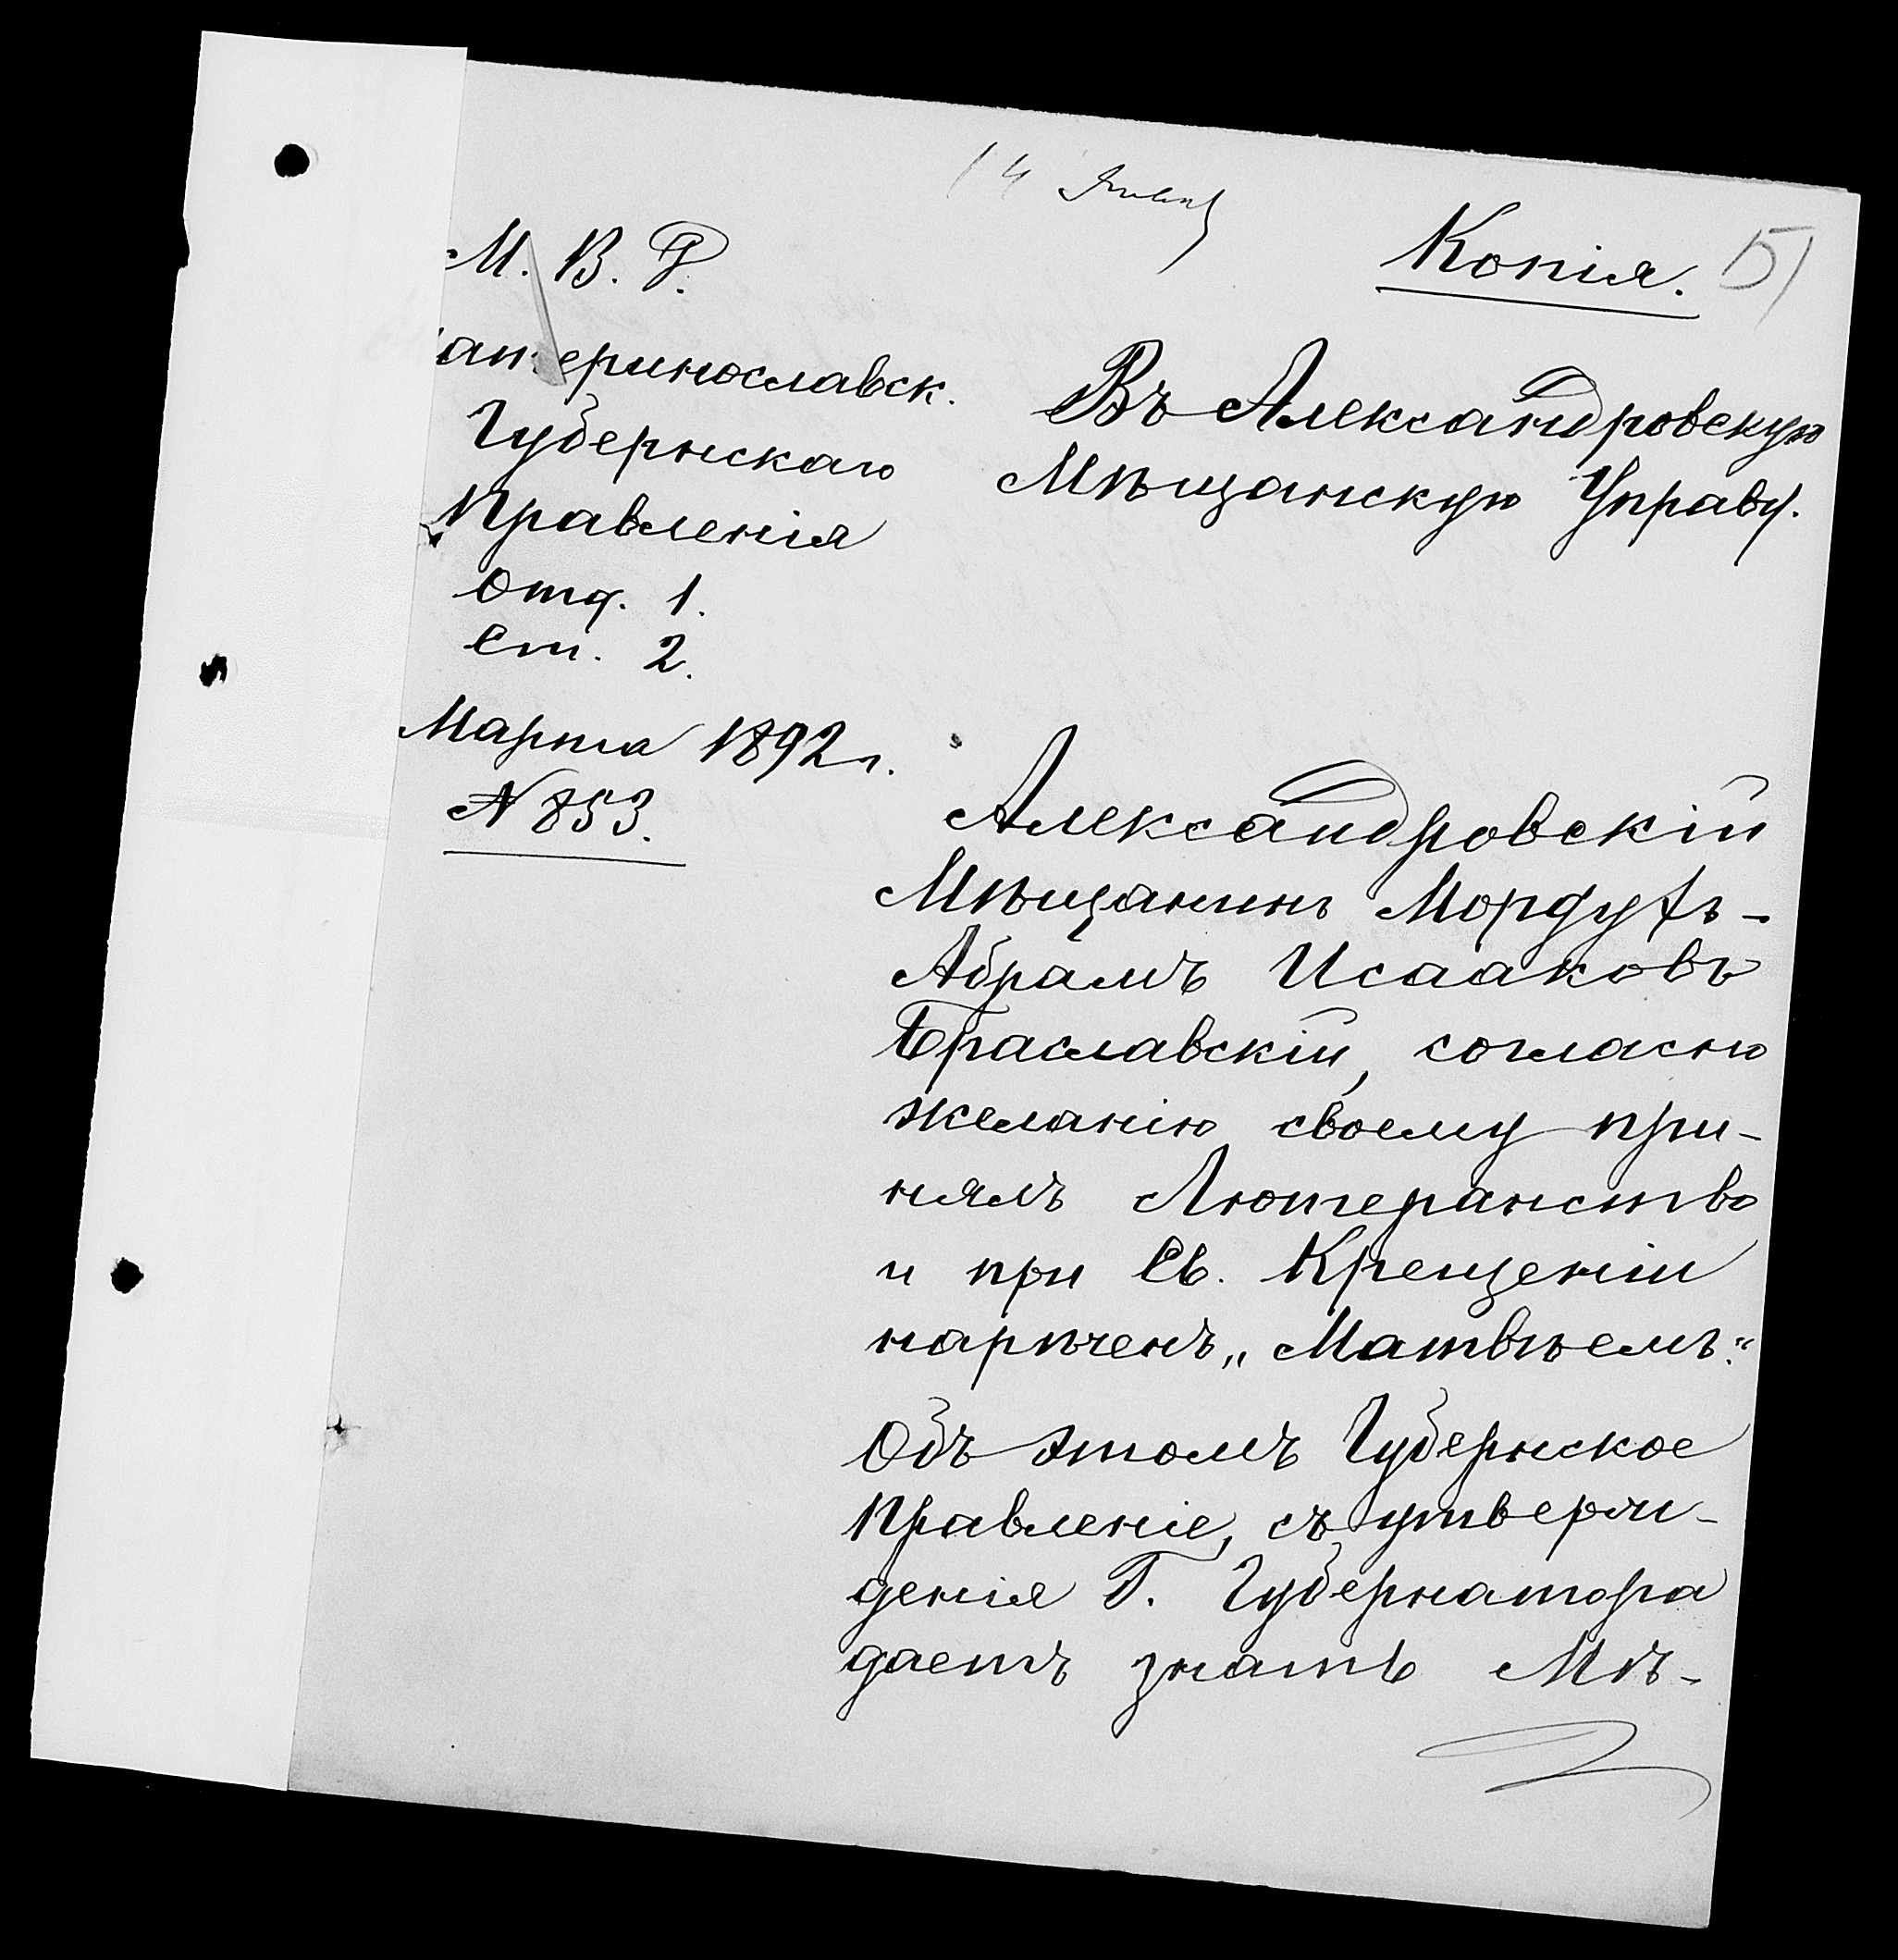 14
Копія. 151
М. В. Д.
атеринославск.
Губернскаго
Правленія
Отд. 1.
Ст. 2.
Марта 1892 г.
№ 853.
Въ Александровскую
Мѣщанскую Управу.
Александровскій
Мѣщанинъ Мордухъ-
Абрамъ Исааковъ
Браславскій, согласно
желанію своему при-
нялъ Лютеранство
и при Св. Крещеніи
нареченъ „Матвѣемъ“.
Объ этомъ Губернское
Правленіе, съ утверж-
денія Г. Губернатора
даетъ знать Мѣ-